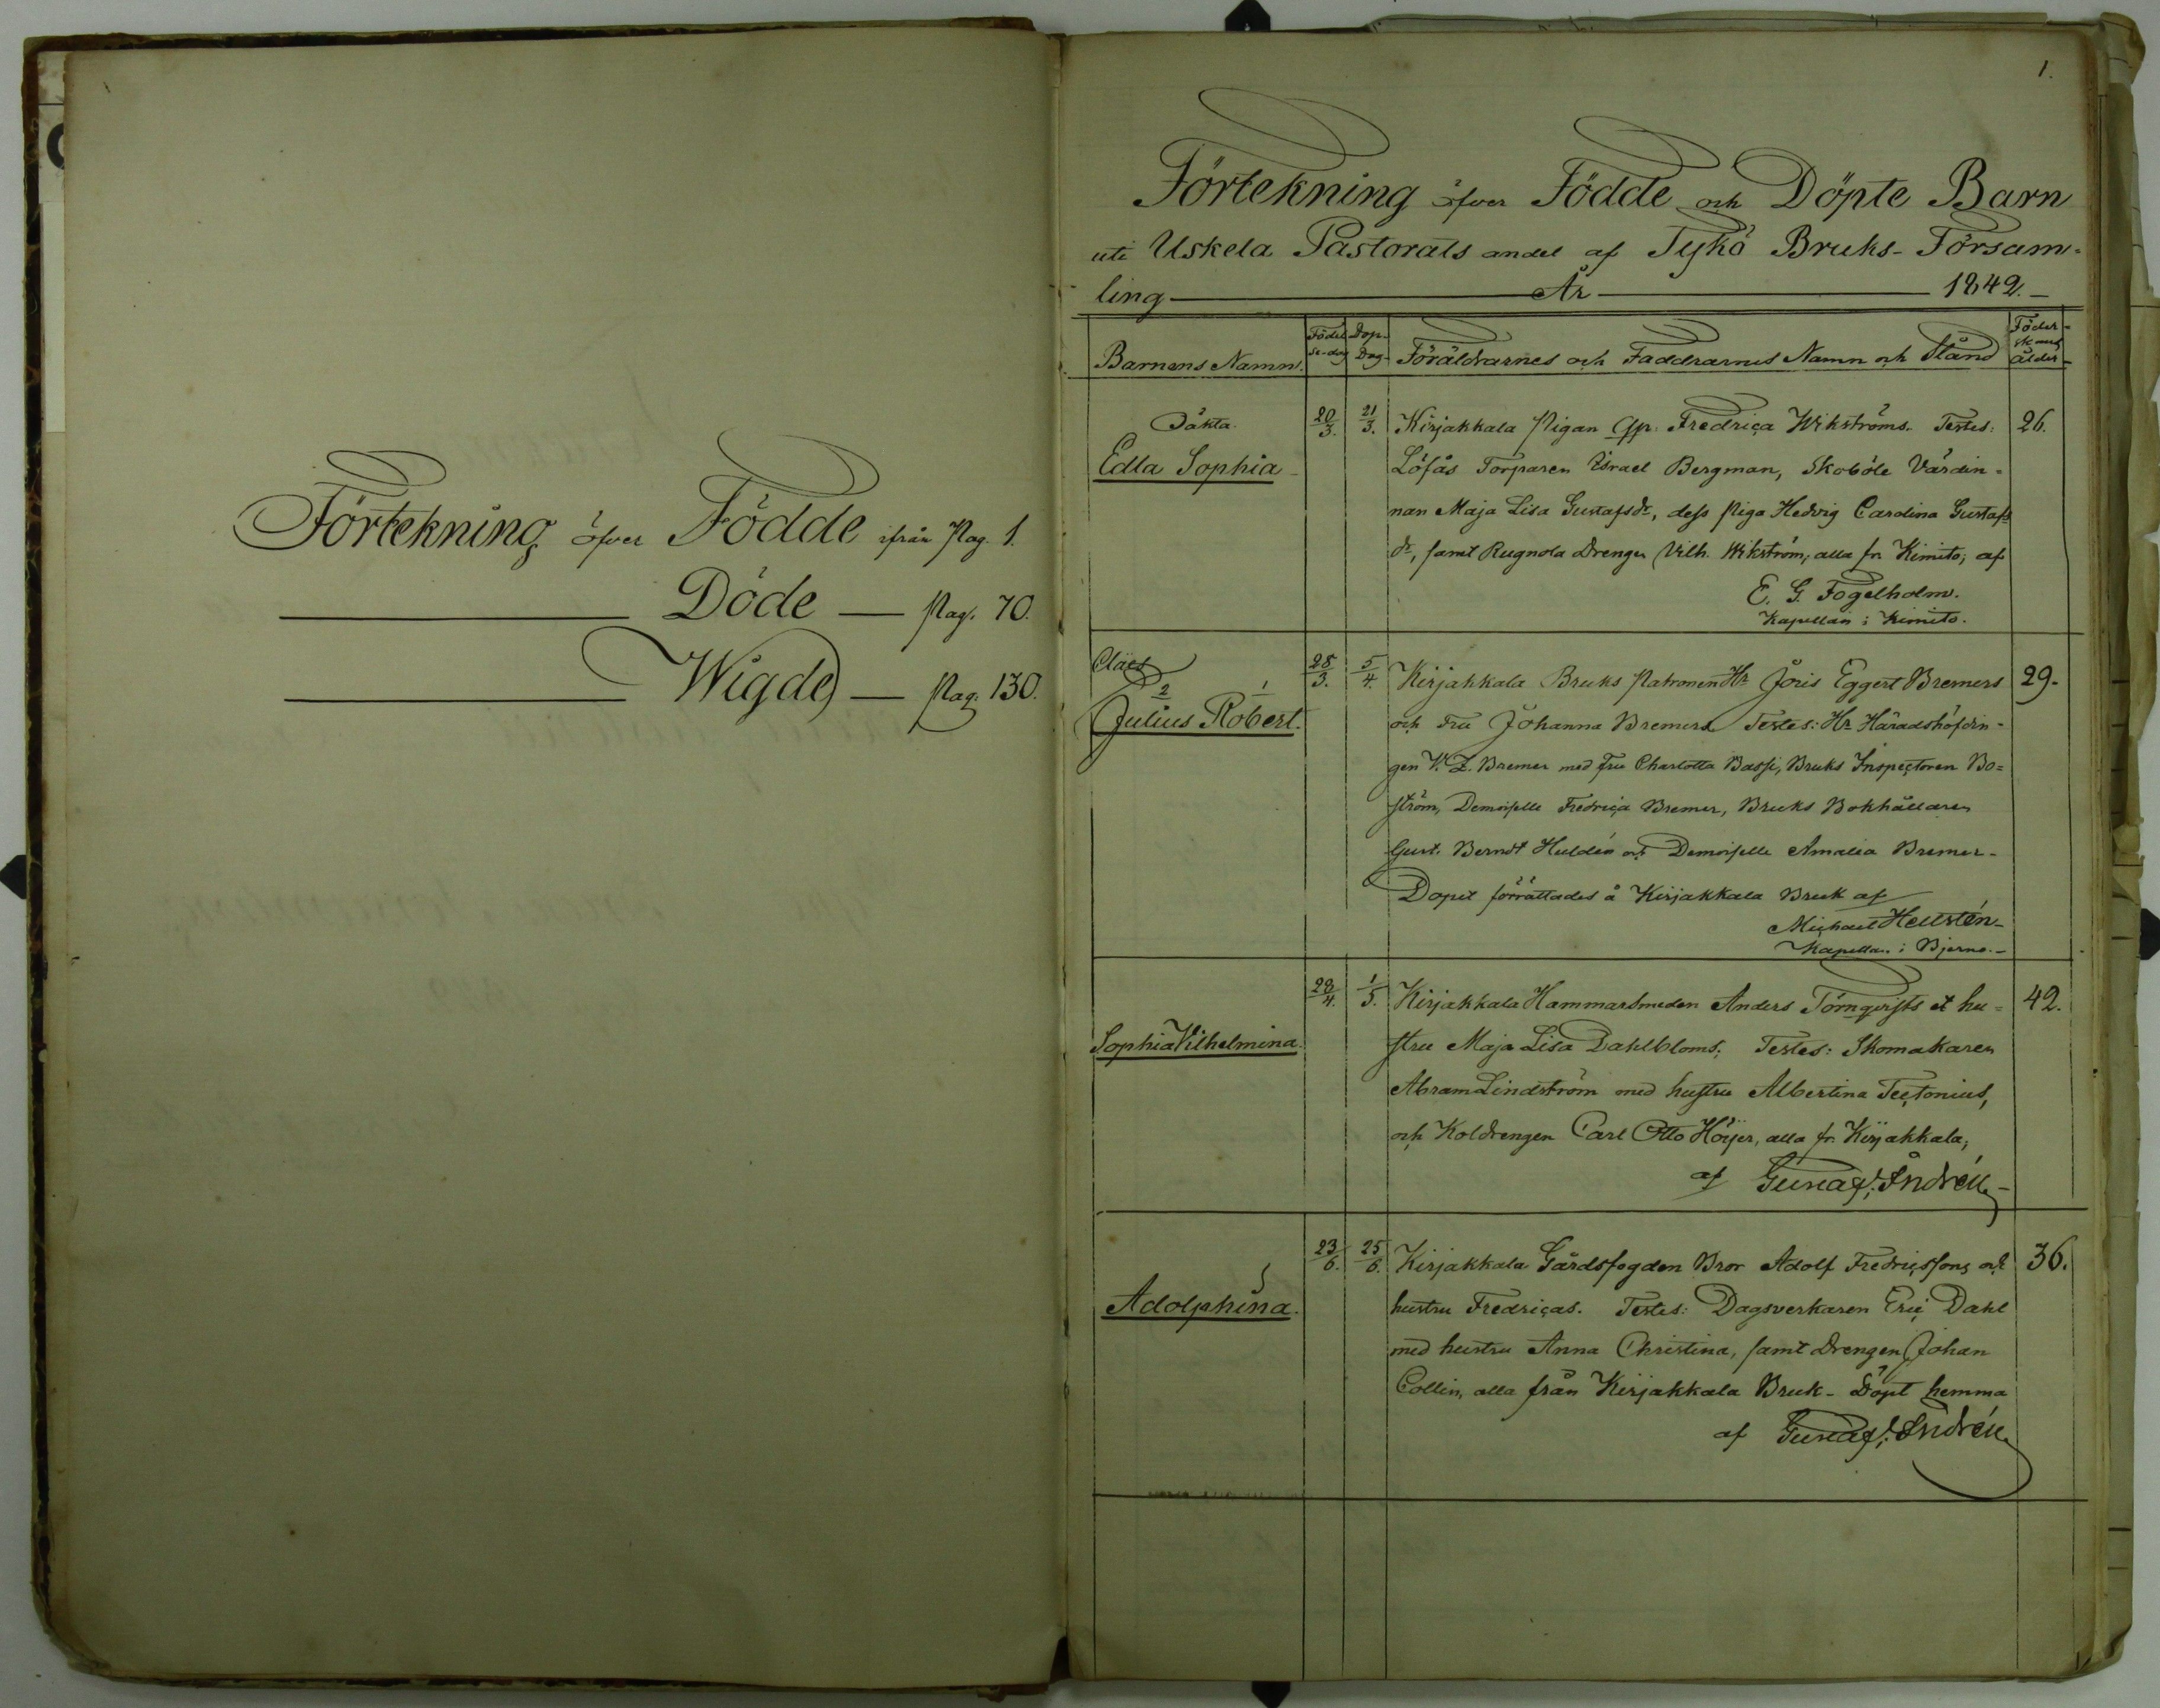 Förtekning öfver Födde ifrån Pag. 1.
Döde — Pag. 70.
Wigde — Pag. 130.
1.
Förtekning öfver Födde och Döpte Barn
uti Uskela Pastorats andel af Tykö Bruks-Församling
År 1842.
Barnens Namn. Födelse-dag Dop-Dag Föräldrarnes och Faddrarnes Namn och Stånd Föderskans ålder
Oäkta
Edla Sophia
20/3. 21/3. Kirjakkala Pigan Fredrica Wikströms. Testes: 26.
Löfås Torparen Israel Bergman, Skoböle Värdin=
nan Maja Lisa Gustafsdr, dess Piga Hedvig Carolina Gustafs
dr, samt Rugnola Drengen Vilh. Wikström, alla fr. Kimito; af
E. G. Fogelholm.
Kapellan i Kimito.
Claes
2 1
Julius Robert.
28/3. 5/4. Kirjakkala Bruks Patronen Hr Joris Eggert Bremers 29.
och Fru Johanna Bremers. Testes: Hr Häradshöfdin-
gen V. Z. Bremer med Fru Charlotta Basse, Bruks Inspectoren Bo=
ström, Demoiselle Fredrica Bremer, Bruks Bokhållaren
Gust. Berndt Huldén och Demoiselle Amalia Bremer-
Dopet förrättades å Kirjakkala Bruk af
Michael Hellstén-
Kapellan i Bjerno.-
Sophia Vilhelmina.
28/4. 1/5. Kirjakkala Hammarsmeden Anders Törnqvists et hu= 42.
stru Maja Lisa Dahlbloms; Testes: Skomakaren
Abram Lindström med hustru Albertina Tectonius,
och Koldrengen Carl Otto Höijer, alla fr. Kirjakkala;
af Gustaf Andrén
Adolphina.
23/6. 25/6. Kirjakkala Gårdsfogden Bror Adolf Fredricssons och 36.
hustru Fredricas. Testes: Dagsverkaren Eric Dahl
med hustru Anna Christina, samt Drengen Johan
Collin, alla från Kirjakkala Bruk- Döpt hemma
af Gustaf Andrén